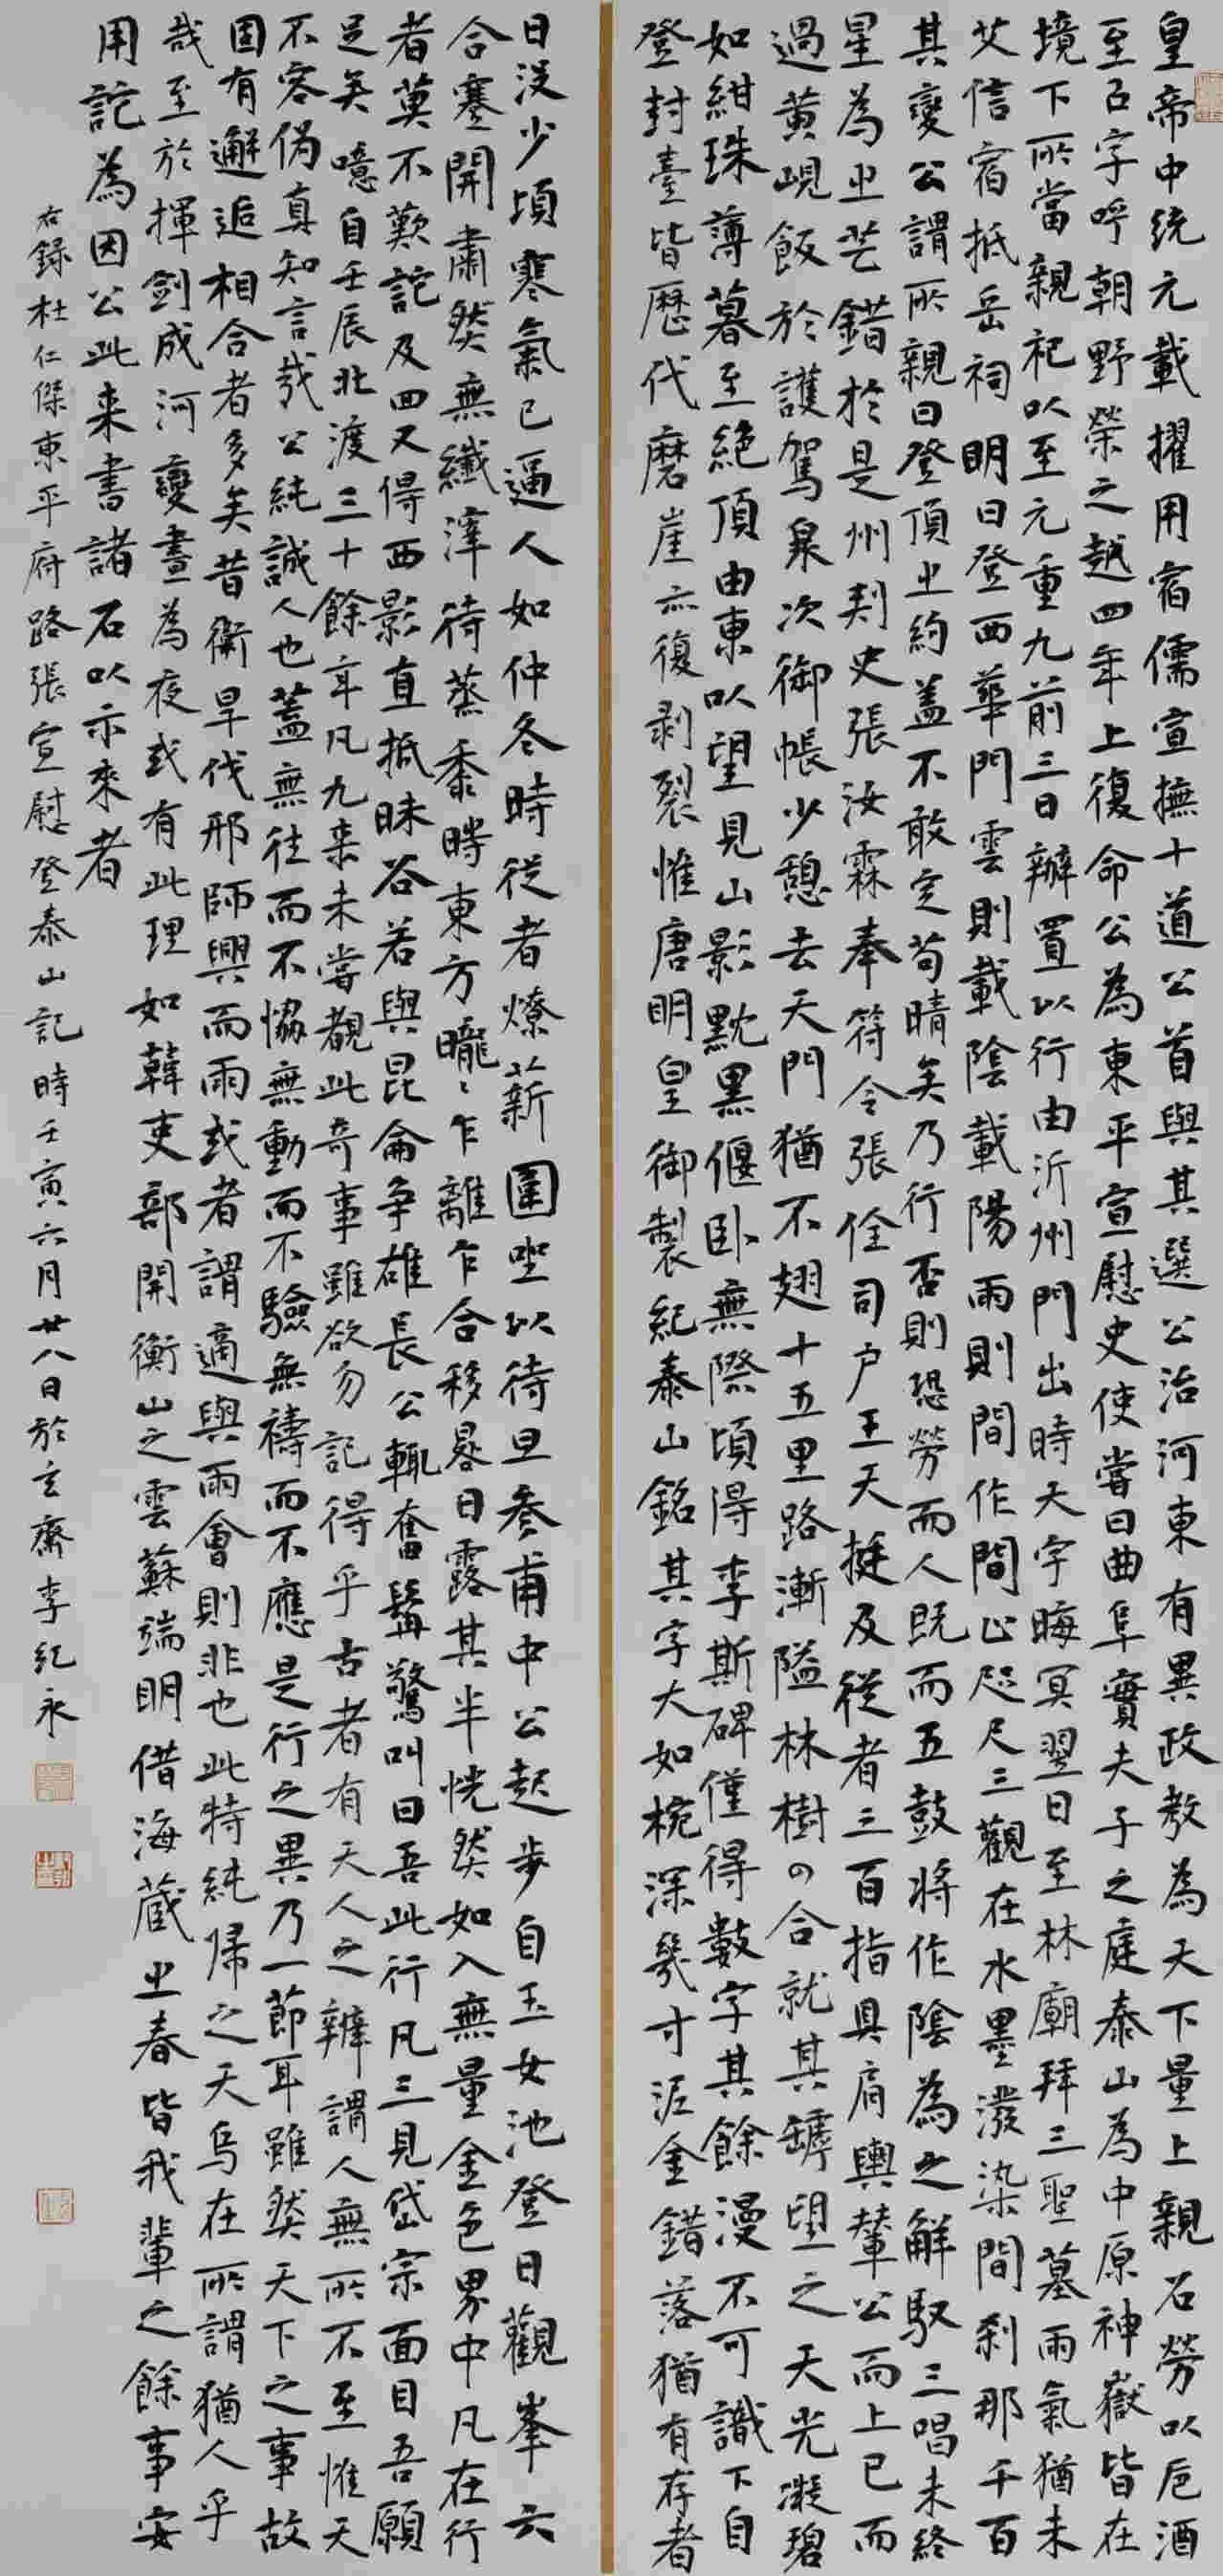 皇帝中統元載擢用宿儒宣撫十道公首與其選公治河東有異政教為天下量上親召勞以卮酒
至召字呼朝野榮之越四年上復命公為東平宣慰史使嘗曰曲阜實夫子之庭泰山為中原神嶽皆在
境下所當親祀以至元重九前三日辦置以行由沂州門出時天宇晦冥翌日至林廟拜三聖墓雨氣猶未
艾信宿抵岳祠明日登西華門雲則載陰載陽雨則間作間止咫尺三觀在水墨潑染間刹那千百
其變公謂所親曰登頂之約盖不敢定苟晴矣乃行否則恐勞而人既而五鼓將作陰為之解馭三唱未終
星為之芒錯於是州刺史張汝霖奉符令張佺司户王天挺及從者三百指具肩輿輦公而上已而
過黄峴飯於護駕泉次御帳少憩去天門猶不翅十五里路漸隘林樹四合就其罅望之天光凝碧
如紺珠薄暮至絶頂由東以望見山影黕黑偃卧無際頃得李斯碑僅得數字其餘漫不可識下自
登封臺皆歷代磨崖亦復剥裂惟唐明皇御製紀泰山銘其字大如椀深幾寸泥金錯落猶有存者
日没少頃寒氣已逼人如仲冬時從者燎薪圍坐以待旦参甫中公起步自玉女池登日觀峯六
合塞開肅然無纖滓待蒸黍時東方曨〻乍離乍合移晷日露其半恍然如入無量金色界中凡在行
者莫不歎詫及四又得西影直抵昧谷若與昆侖争雄長公輒奮髯驚叫曰吾此行凡三見岱宗面目吾願
足矣噫自壬辰北渡三十餘年凡九来未嘗覩此奇事雖欲勿記得乎古者有天人之辨謂人無所不至惟天
不容偽真知言哉公純誠人也蓋無往而不恊無動而不驗無禱而不應是行之異乃一節耳雖然天下之事故
固有邂逅相合者多矣昔衛旱伐邢師興而雨或者謂適與雨會則非也此特純歸之天烏在所謂猶人乎
哉至於揮劍成河變晝為夜或有此理如韓吏部開衡山之雲蘇端明借海藏之春皆我輩之餘事安
用詑為因公此来書諸石以示來者
右錄杜仁傑東平府路張宣慰登泰山記時壬寅六月廿八日於玄齋李紀永